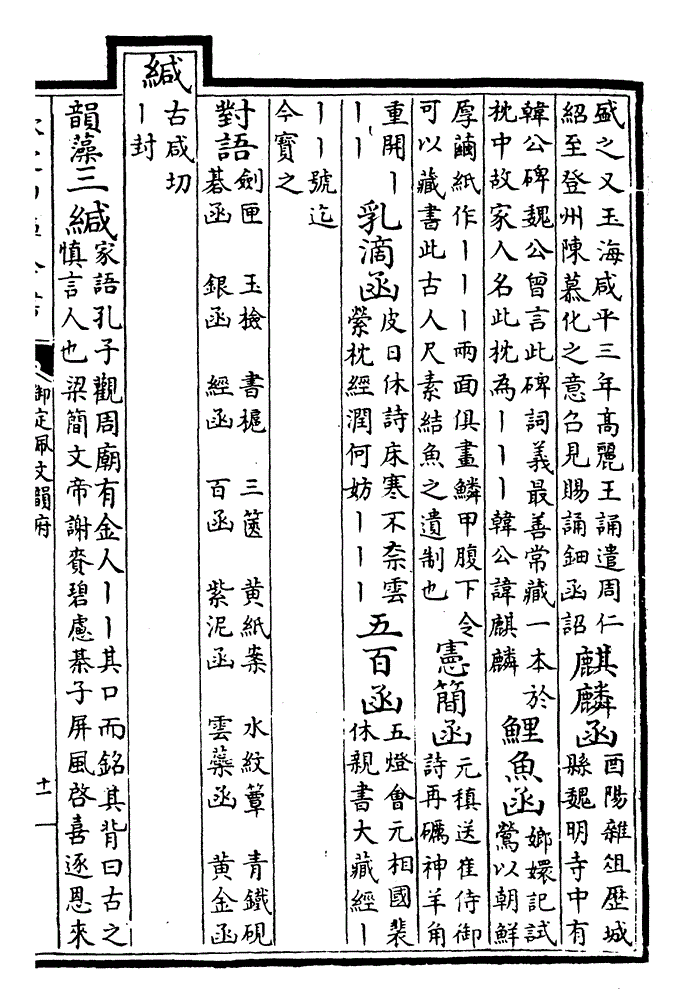 盛之又玉海咸平三年高麗王誦遣周仁
紹至登州陳慕化之意召見賜誦鈿函詔
麒麟函
酉陽雜俎歷城
縣魏明寺中有
韓公碑魏公曾言此碑詞義最善常藏一本於
枕中故家人名此枕為丨丨丨韓公諱麒麟
鯉魚函
嫏嬛記試
鶯以朝鮮
厚繭紙作丨丨丨兩面俱畫鱗甲腹下令
可以藏書此古人尺素結魚之遺制也
憲簡函
元稹送崔侍御
詩再礪神羊角
重開丨
丨丨
乳滴函
皮日休詩床寒不柰雲
縈枕經潤何妨丨丨丨
五百函
五燈會元相國裴
休親書大藏經丨
丨丨號迄
今寶之
對語
劍匣 玉檢 書槴 三篋 黃紙案 水紋簟 青鐵硯
碁函 銀函 經函 百函 紫泥函 雲藥函 黃金函
緘
古咸切
丨封
韻藻三緘
家語孔子觀周廟有金人丨丨其口而銘其背曰古之
慎言人也 梁簡文帝謝賚碧慮棊子屏風啓喜逐恩來
御定佩文韻府
十一